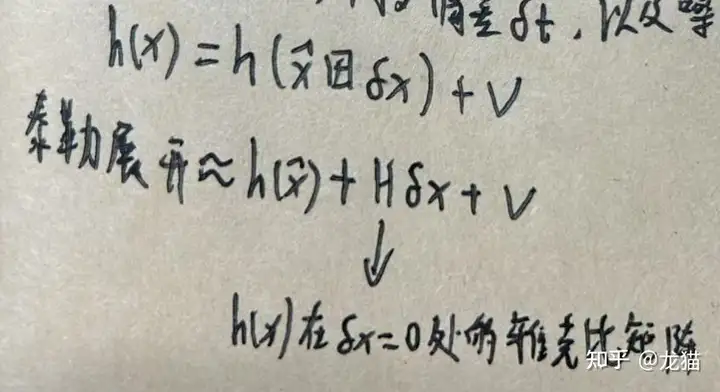 偏差δt,以及噪
h(x) = h(x̂ ⊞ δx) + V
泰勒展开 ≈ h(x̂) + Hδx + V
↓
h(x)在δx=0处的雅克比矩阵
知乎 @龙猫